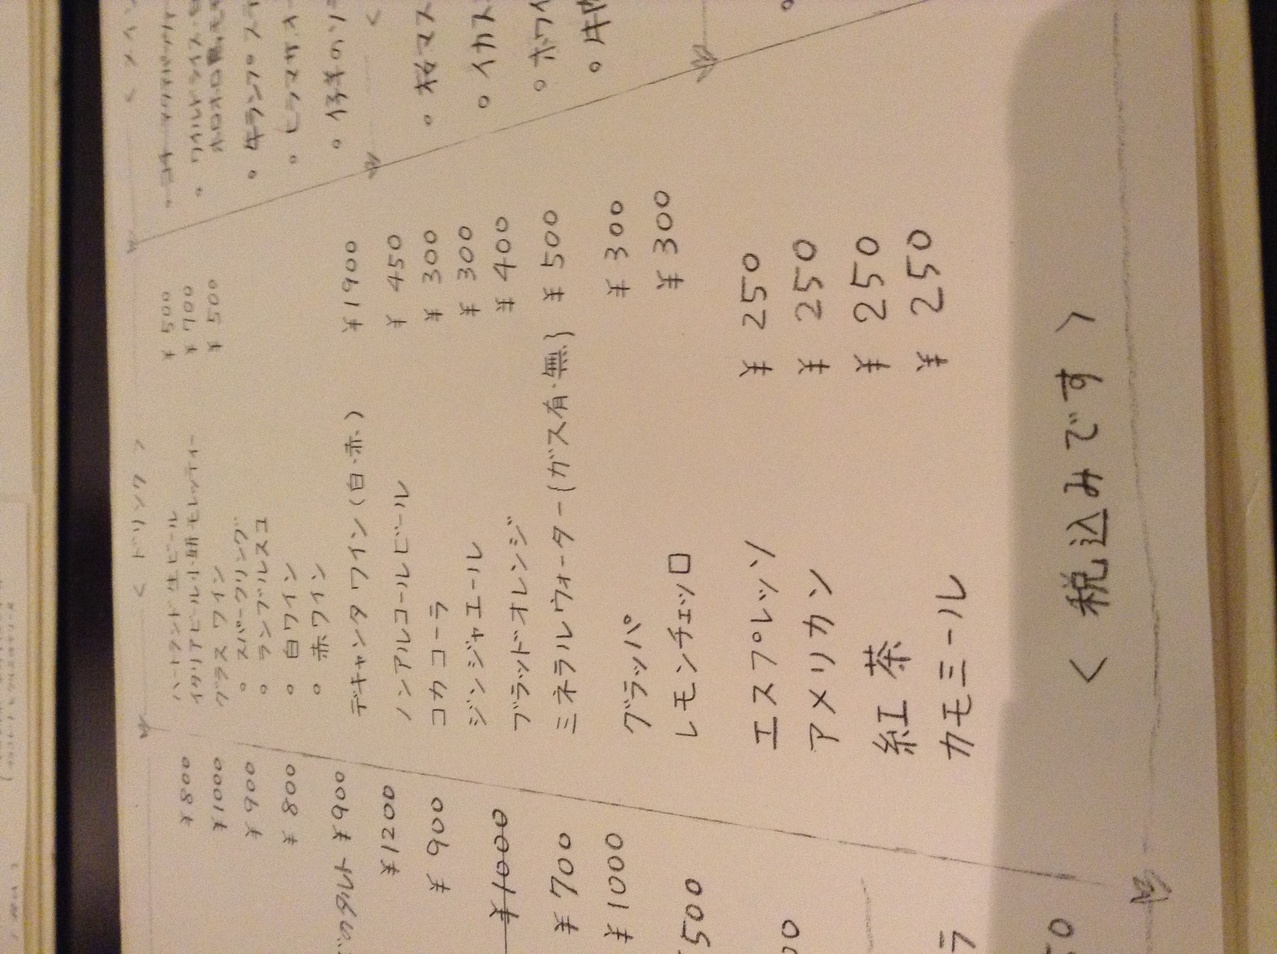 < ドリンク >
ハートランド 生ビール ¥500
イタリアビール小瓶 モレッティー ¥700
グラスワイン ¥500
。スパークリング
。ランブルスコ
。白ワイン
。赤ワイン
デキャンタワイン (白・赤) ¥1900
ノンアルコールビール ¥450
コカコーラ ¥300
ジンジャエール ¥300
ブラッドオレンジ ¥400
ミネラルウォーター{ガス有・無} ¥500
グラッパ ¥300
レモンチェッロ ¥300
エスプレッソ ¥250
アメリカン ¥250
紅茶 ¥250
カモミール ¥250
< 税込みです >
¥800
¥1000
¥900
¥800
¥900
¥1200
¥900
¥1000
¥700
¥1000
500
ラ
< メイン
。キランプのス
。ヒラマサ
。仔羊のソ
<
。桜マス
。イカス
。ホワイ